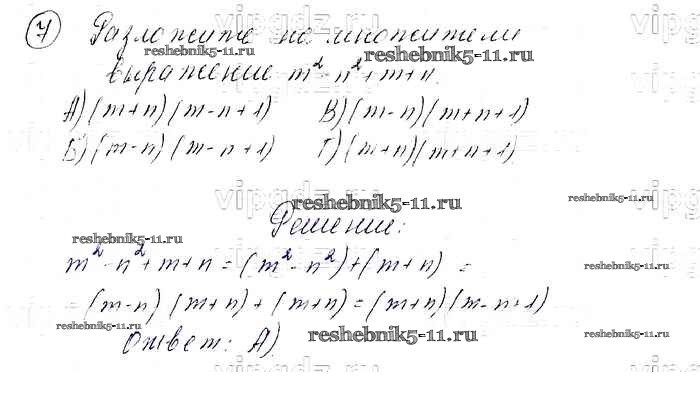 7 Разложите на множители
выражение m² - n² + m + n.
А) (m+n)(m-n+1) В) (m-n)(m+n+1)
Б) (m-n)(m-n+1) Г) (m+n)(m+n+1)
Решение:
m² - n² + m + n = (m² - n²) + (m + n) =
= (m-n)(m+n) + (m+n) = (m+n)(m-n+1)
Ответ: А).
vipgdz.ru
reshebnik5-11.ru
reshebnik5-11.ru
reshebnik5-11.ru
reshebnik5-11.ru
reshebnik5-11.ru
reshebnik5-11.ru
reshebnik5-11.ru
reshebnik5-11.ru
reshebnik5-11.ru
reshebnik5-11.ru